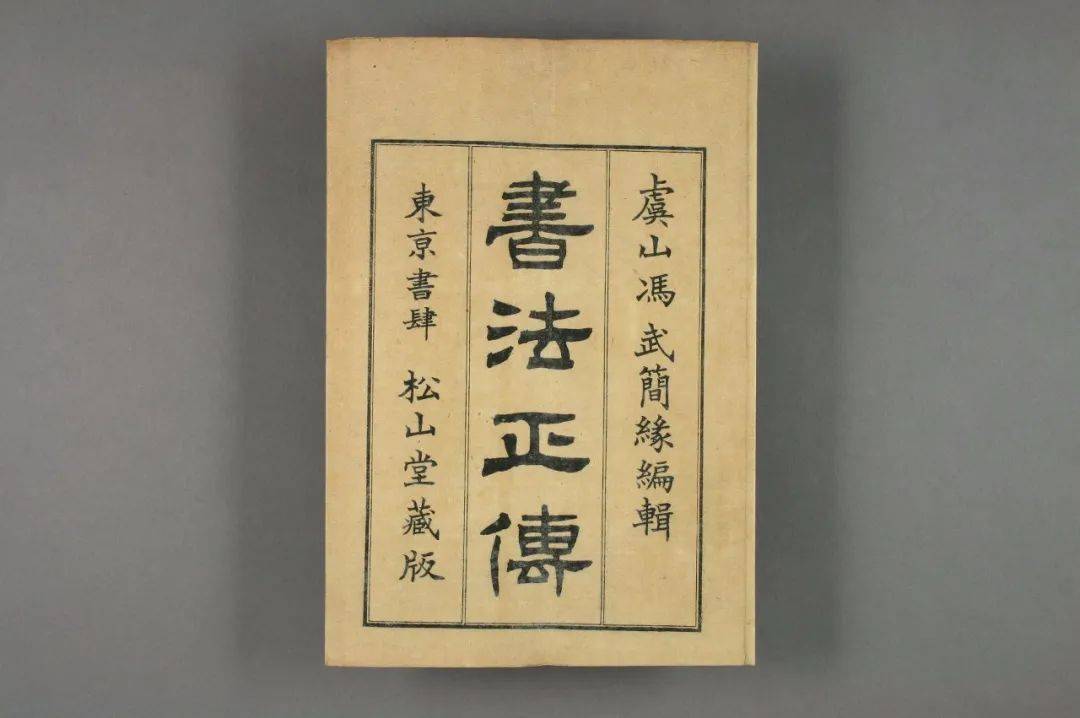 虞山馮武簡緣編輯
書法正傳
東京書肆 松山堂藏版